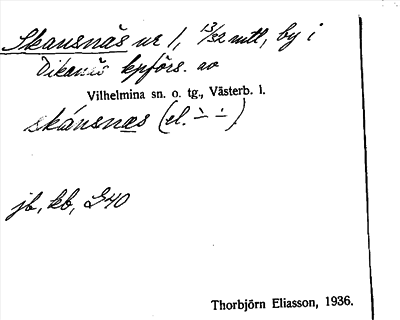 Skansnäs nr 1, 13/32 mtl, by i
Dikanäs kpförs. av
Vilhelmina sn. o. tg., Västerb. l.
skánsnæs (el. ∸ ∸)
jb, kb, G40
Thorbjörn Eliasson, 1936.